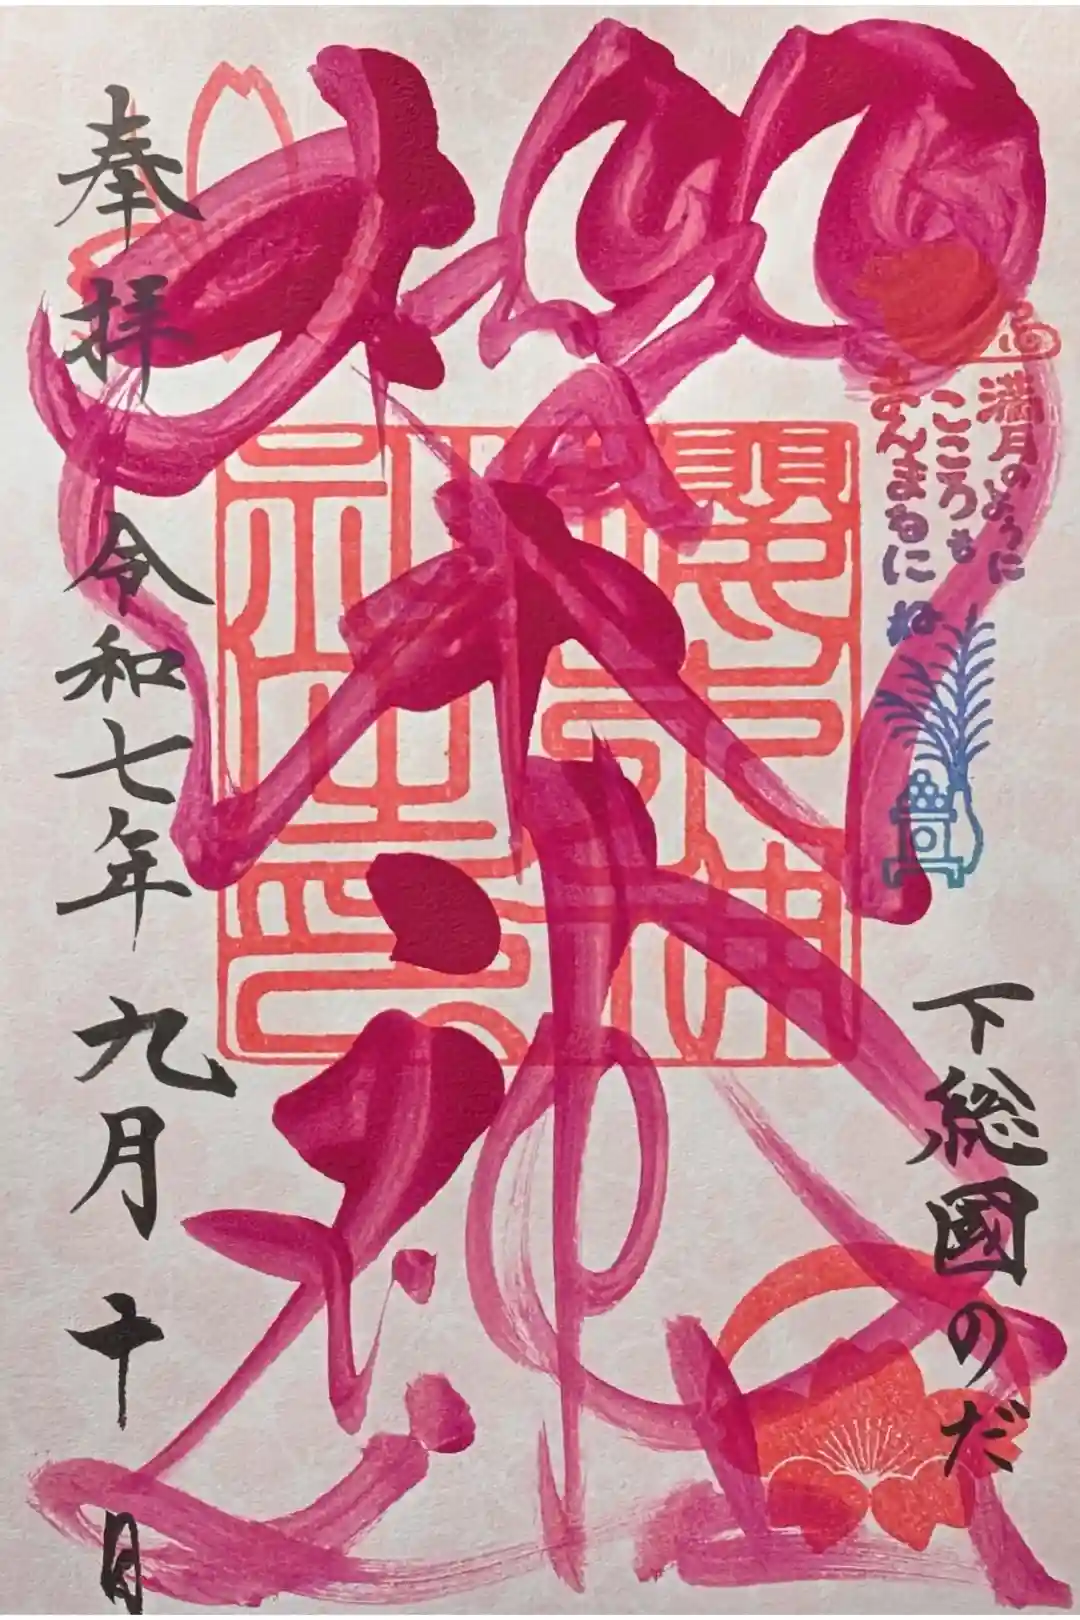 満月のように
こころも
まんまるにね
下総國のだ
櫻木神社
櫻木神
社之印
奉拝 令和七年九月十日